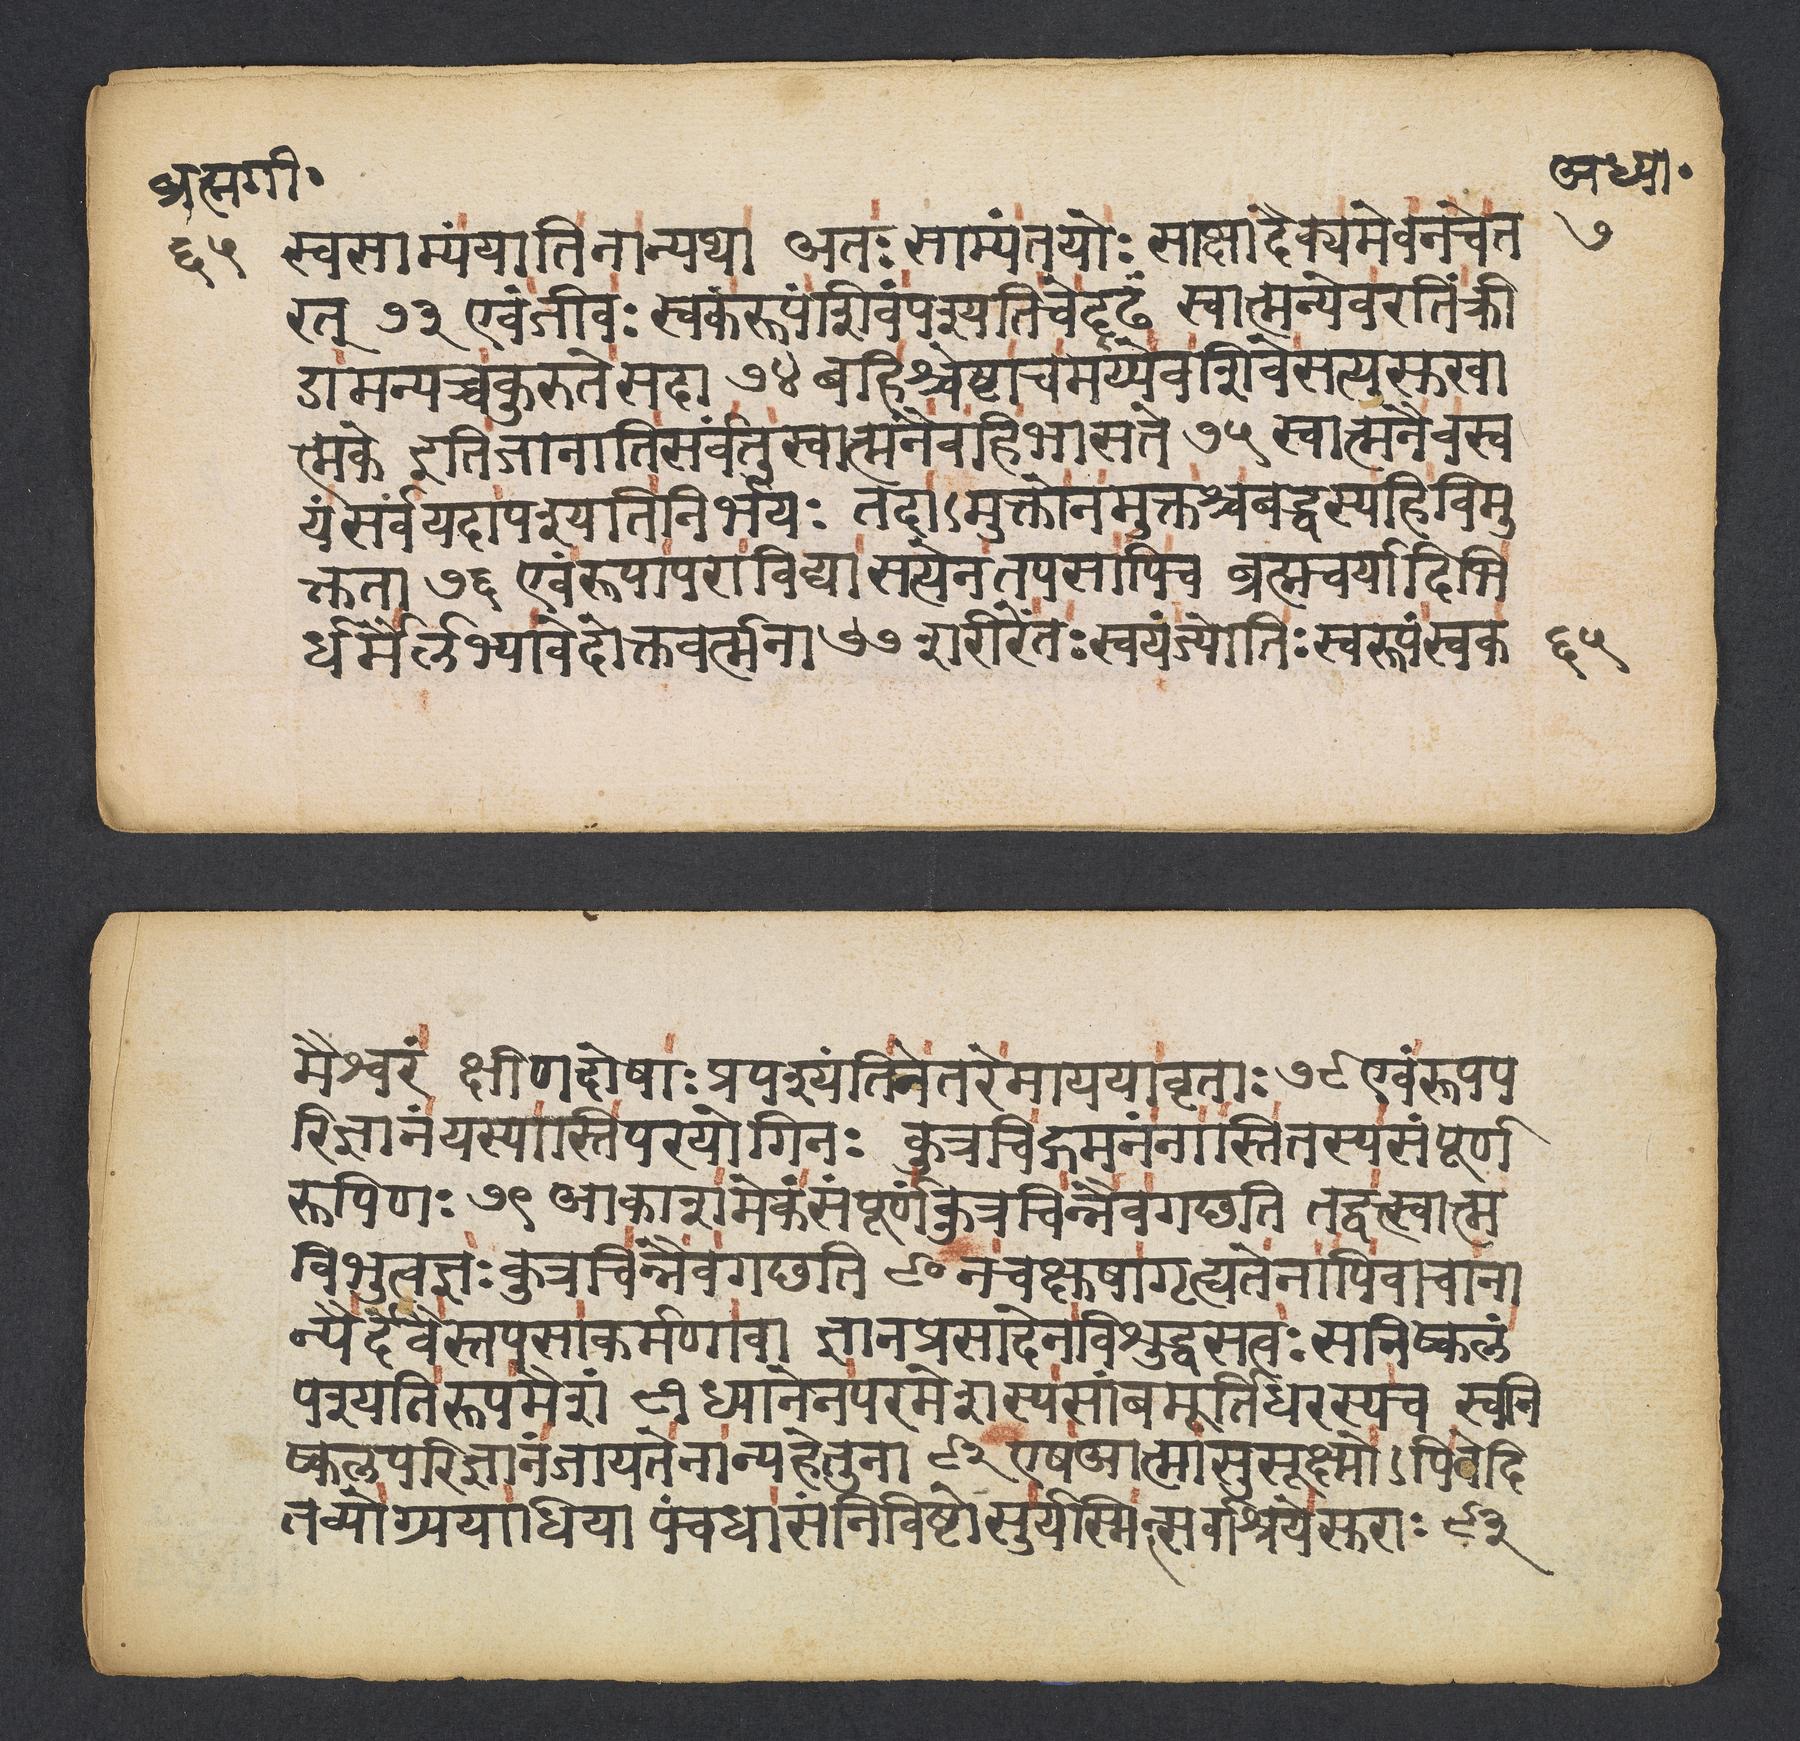 ब्रह्मगी॰
अध्या॰
६५
७
स्वसाम्यंयातिनान्यथा अतःसाम्यंतयोःसाक्षादैक्यमेवनचेत
रत् ७३ एवंजीवःस्वकंरूपंशिवंपश्यतिचेद्दृढं स्वात्मन्येवरतिंक्री
डामन्यच्चकुरुतेसदा ७४ बहिश्चेष्टाचमय्येवशिवेसत्युस्करवा
त्मके इतिजानातिसर्वंतुस्वात्मनैवहिभासते ७५ स्वात्मनैवस्व
यंसर्वंयदापश्यतिनिर्भयः तदाऽमुक्तोनमुक्तश्चबद्धस्यहिविमु
क्तता ७६ एवंरूपापराविद्यासत्येनतपसापिच ब्रह्मचर्यादिभि
र्धर्मैर्लभ्यावेदोक्तवर्त्मना ७७ शरीरेंतःस्वयंज्योतिःस्वरूपंस्वक
६५
मैश्वरं क्षीणदोषाःप्रपश्यंतिनेतरेमाययावृताः ७८ एवंरूपप
रिज्ञानंयस्यास्तिपरयोगिनः कुत्रचिद्गमनंनास्तितस्यसंपूर्ण
रूपिणः ७९ आकाशमेकंसंपूर्णंकुत्रचिन्नैवगछति तद्वत्स्वात्म
विभुत्वज्ञःकुत्रचिन्नैवगछति ८० नचक्षुषागृह्यतेनापिवाचाना
न्यैर्देवैस्तपसाकर्मणावा ज्ञानप्रसादेनविशुद्धसत्वःसनिष्कलं
पश्यतिरूपमैशं ८१ ध्यानेनपरमेशस्यसांबमूर्तिधरस्यच स्वनि
ष्कलपरिज्ञानंजायतेनान्यहेतुना ८२ एषआत्मासुसूक्ष्मोऽपिवेदि
तव्योग्र्ययाधिया पंचधासंनिविष्टोसुर्यस्मिन्सर्वाश्रयेस्तराः ८३